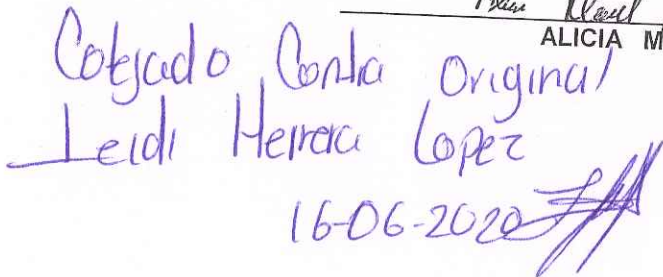 ALICIA M
Cotejado Contra Original
Leidi Herrera Lopez
16-06-2020